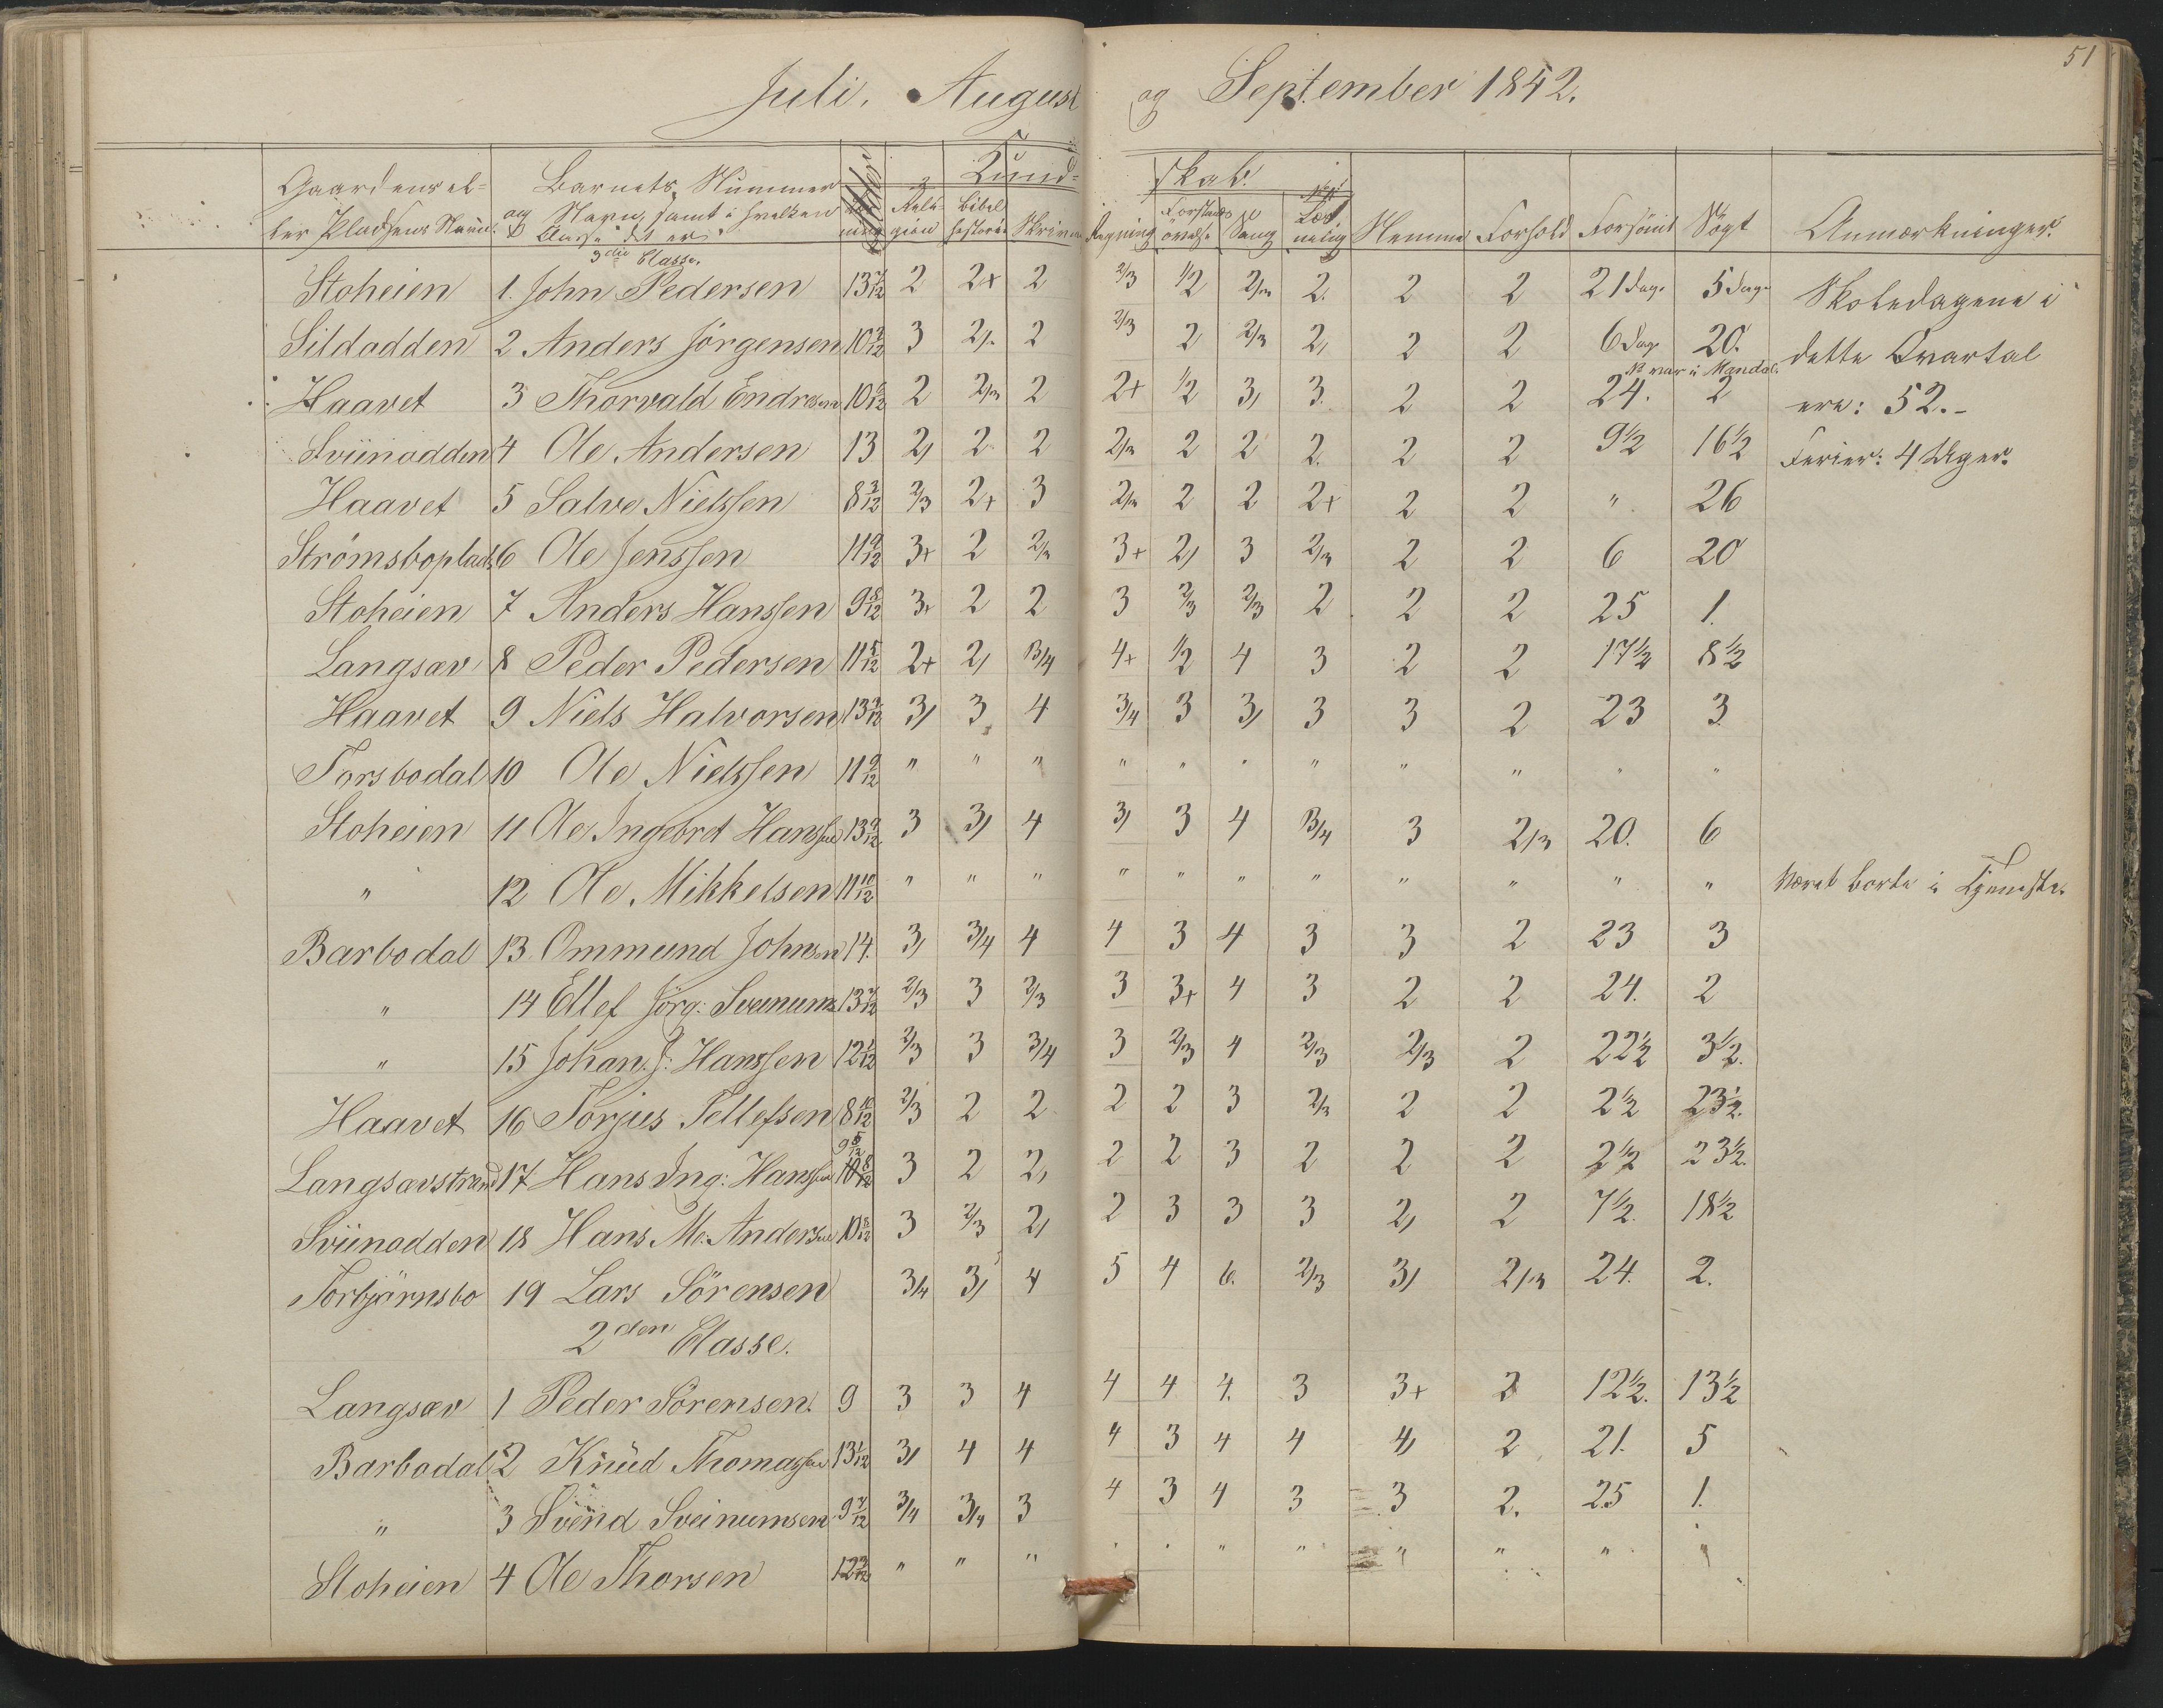 51
Juli, August og September 1842.
Gaardens el- Barnets Nummer Kund- skab.
ler Pladsens Navn. og Navn, samt i hvilken Reli- Bibel Forstands Læs
Classe det er gion historie Skrivn Regning övelse Sang nelig Nemme Forhold Forsömt Sögt Anmærkninger.
3die Classe.
Stoheien 1. John Pedersen 13 7/12 2 2+ 2 2/3 1/2 2/3 2. 2 2 21 dage 5 dage Skoledagene i
Sildodden 2 Anders Jörgensen 10 3/12 3 2/. 2 2/3 2 2/3 2, 2 2 6 Dage 20. dette Qvartal
No var i Mandal.
Haavet 3 Thorvald Endresen 10 6/12 2 2/3 2 2+ 1/2 3/ 3. 2 2 24. 2 ere: 52.-
Sviinodden 4 Ole Andersen 13 2/ 2 2 2/3 2 2 2. 2 2 9 1/2 16 1/2 Ferier: 4 Uger.
Haavet 5 Salve Nielssen 8 3/12 2/3 2+ 3 2/3 2 2 2+ 2 2 " 26
Strömsboplads 6 Ole Jenssen 11 9/12 3+ 2 2/3 3+ 2/ 3 2/3 2 2 6 20
Stoheien 7 Anders Hanssen 9 8/12 3+ 2 2 3 2/3 2/3 2 2 2 25 1.
Langsæv 8 Peder Pedersen 11 5/12 2+ 2/ 3/4 4+ 1/2 4 3 2 2 17 1/2 8 1/2
Haavet 9 Niels Halvorsen 13 9/12 3/ 3 4 3/4 3 3/ 3 3 2 23 3
Torsbodal 10 Ole Nielssen 11 9/12 " " " " " " " " " " "
Stoheien 11 Ole Ingebret Hanssen 13 9/12 3 3/ 4 3/ 3 4 3/4 3 2/3 20. 6
" 12 Ole Mikkelsen 11 10/12 " " " " " " " " " " " Været borte i Tjeneste.
Barbodal 13 Ommund Johnsen 14. 3/ 3/4 4 4 3 4 3 3 2 23 3
" 14 Ellef Jörg: Sveinums 13 7/12 2/3 3 2/3 3 3+ 4 3 2 2 24. 2
" 15 Johan J: Hanssen 12 1/12 2/3 3 3/4 3 2/3 4 2/3 2/3 2 22 1/2 3 1/2.
Haavet 16 Torjus Tellefsen 8 10/12 2/3 2 2 2 2 3 2/3 2 2 2 1/2 23 1/2.
Langsævstrand 17 Hans Ing: Hanssen 9 5/12 3 2 2, 2 2 3 2 2 2 2 1/2 23 1/2.
Sviinodden 18 Hans M: Andersen 10 8/12 3 2/3 2/ 2 3 3 3 2/ 2 7 1/2. 18 1/2
Torbjörnsbo 19 Lars Sörensen 3/4 3/ 4 5 4 6. 2/3 3/ 2/3 24. 2.
2den Classe.
Langsæv 1 Peder Sörensen. 9 3 3 4 4 4 4. 3 3+ 2 12 1/2. 13 1/2
Barbodal 2 Knüd Thomassen 13 1/12 3/ 4 4 4 3 4 4 4/ 2 21. 5
" 3 Svend Sveinumsen 9 7/12 3/4 3/4 3 4 3 4 3 3 2. 25 1.
Stoheien 4 Ole Thorsen 12 3/12 " " " " " " " " " " "